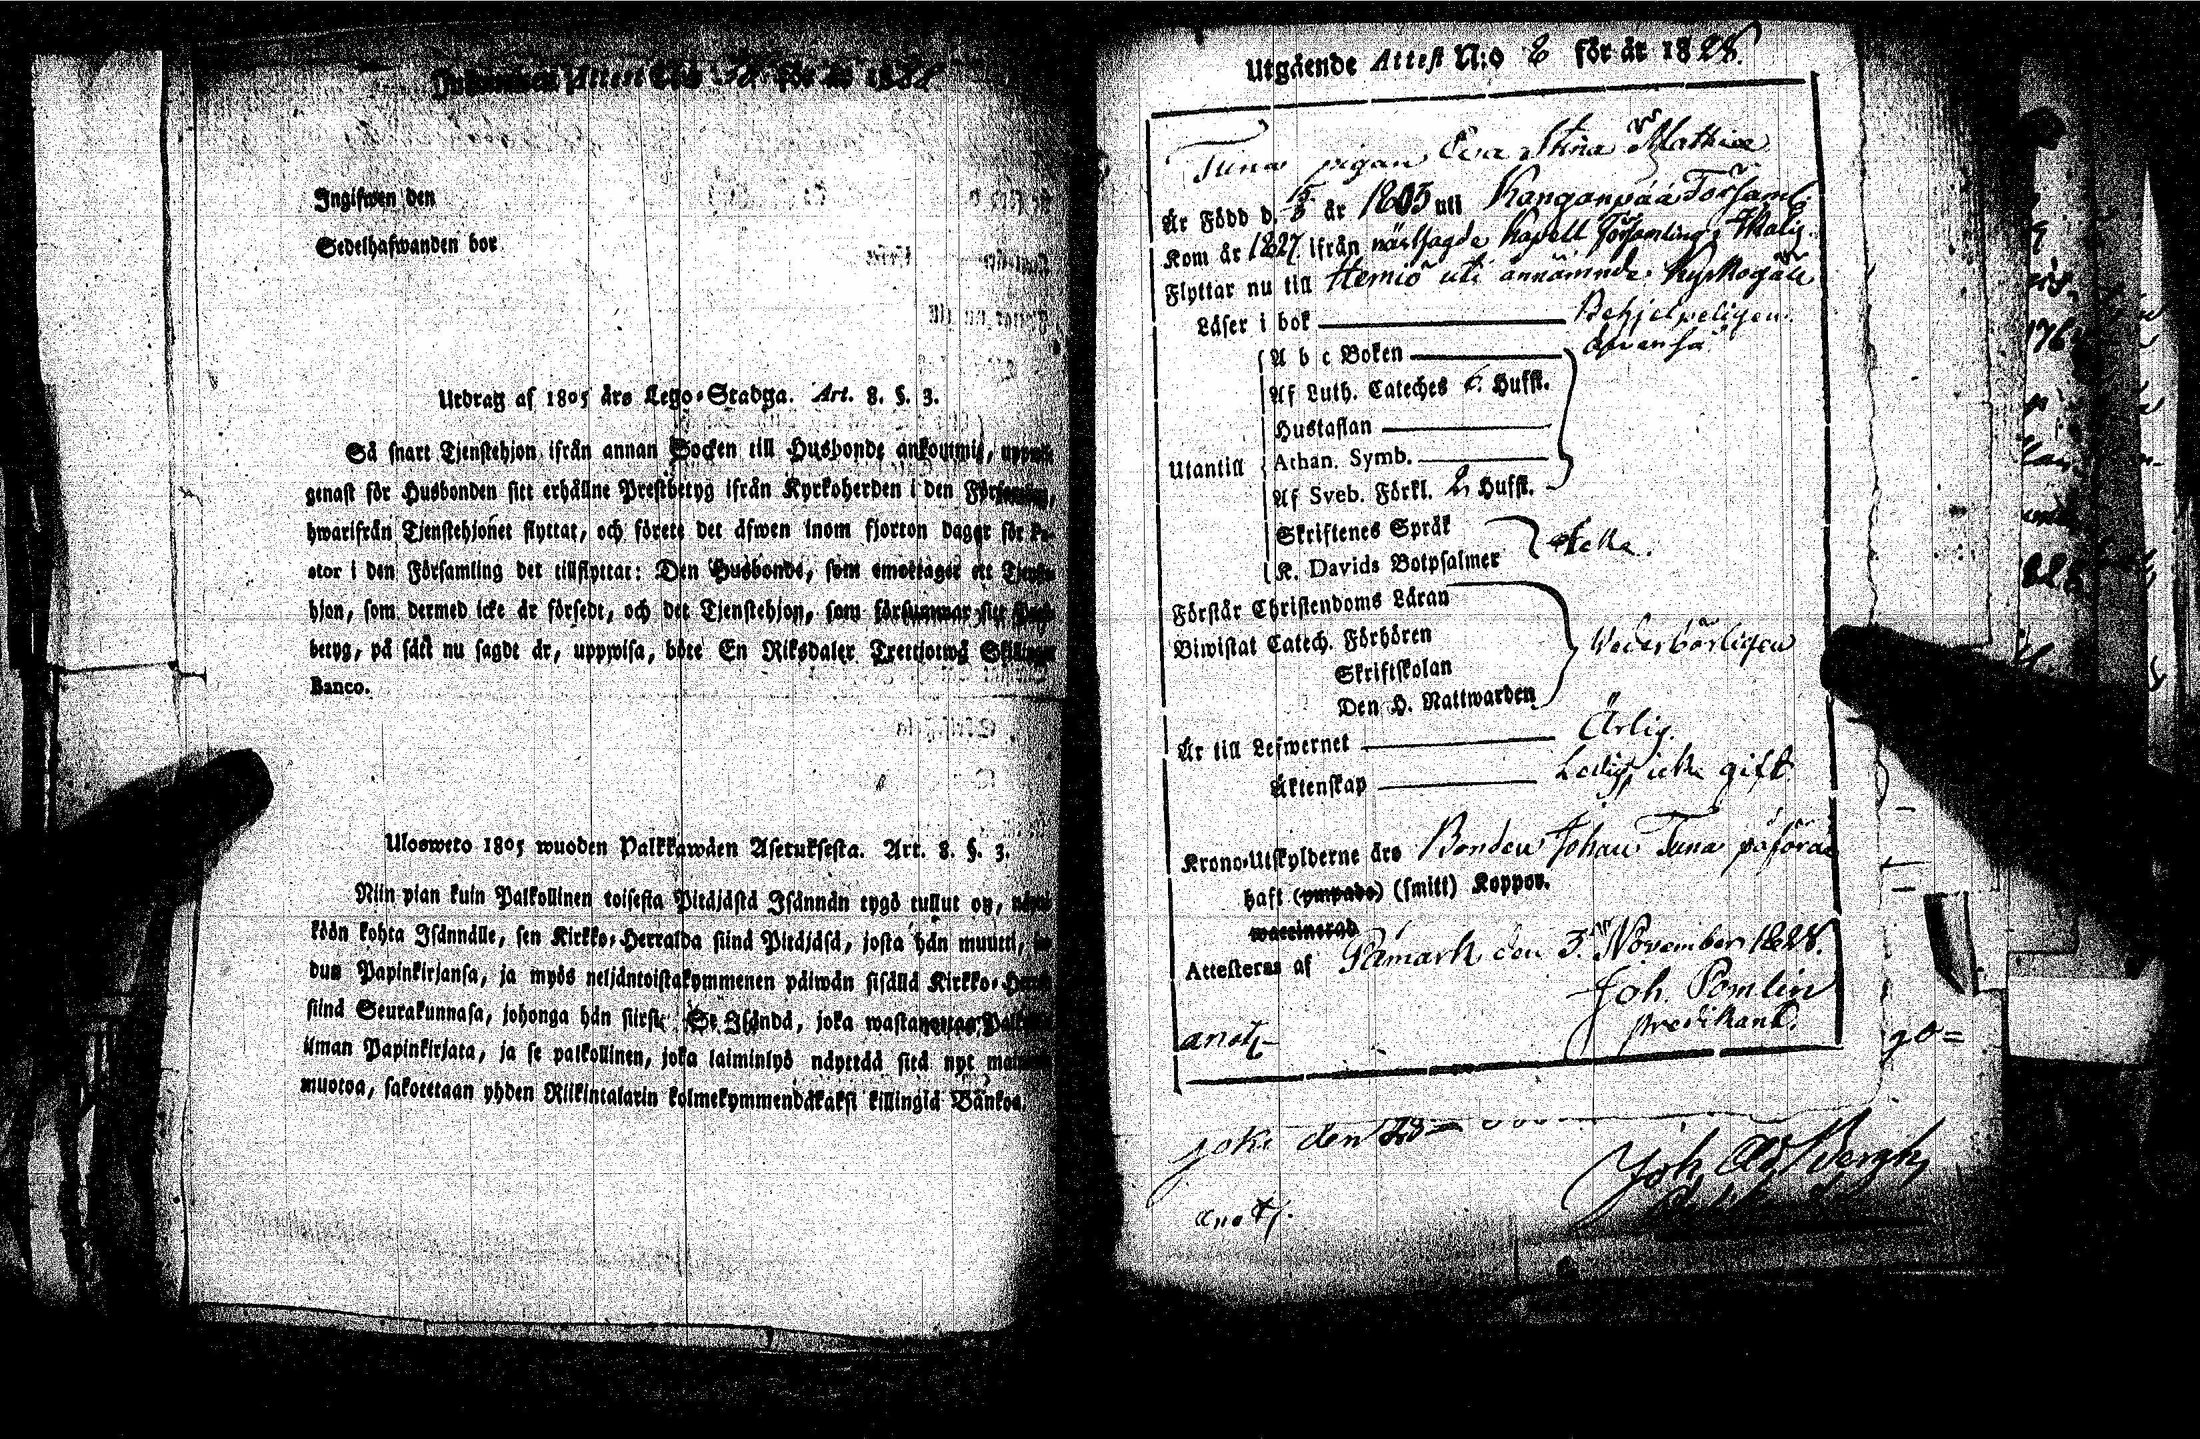 Attest N:o för år 18
Ingifwen den
Sedelhafwanden bor
Utdrag af 1805 års Lego-Stadga. Art. 8. §. 3.
Så snart Tjenstehjon ifrån annan Socken till Husbonde ankommit,
genast för Husbonden sitt erhållne Prestbetyg ifrån Kyrkoherden i den
hwarifrån Tjenstehjonet flyttat, och förete det äfwen inom fjorton dagar för
i den Församling det tillflyttat: Den Husbonde, som emottager ett
hjon, som dermed icke är försedt, och det Tjenstehjon, som försummar sitt
betyg, på sätt nu sagdt är, uppwisa, böte En Riksdaler Trettiotwå
Banco.
Ulosweto 1805 wuoden Palkkawäen Asetuksesta. Art. 8. §. 3.
Niin pian kuin Palkollinen toisesta Pitäjästä Isännän tygö tullut on,
köön kohta Isännälle, sen Kirkko-Herralda siinä Pitäjäsä, josta hän muutti,
dun Papinkirjansa, ja myös neljäntoistakymmenen päiwän sisällä Kirkko-
siinä Seurakunnasa, johonga hän siirsi. Se Isändä, joka wastanottaa
ilman Papinkirjata, ja se palkollinen, joka laiminlyö näyttää sitä nyt
muotoa, sakotetaan yhden Riikintalarin kolmekymmendäkaksi killingiä Bankoa.
Utgående Attest N:o 2 för år 1828.
Tuna pigan Eva Stina Mathiæ
Är Född d. år 1803 uti Kanganpää Församl.
Kom år 1827 ifrån nästsagde Kapell Församling,
Flyttar nu till Hemiö uti annämnda Kyrkogäll
Läser i bok Behjelpeligen.
A b c Boken äfvenså
Af Luth. Cateches 6. Hufst.
Hustaflan
Utantill Athan. Symb.
Af Sveb. Förkl. 2 Hufst.
Skriftenes Språk
K. Davids Botpsalmer Icke.
Förstår Christendoms Läran
Biwistat Catech. Förhören Wederbörligen
Skriftskolan
Den H. Nattwarden
Är till Lefwernet Ärlig.
Äktenskap Ledig, icke gift
Krono-Utskylderne äro Bonden Johan Tuna påförde
haft (ympade) (smitt) Koppor.
waccinerad
Attesteras af Påmark den 3. November 1828.
Joh. Pomlin
Predikant.
anotj-
joki den
Joh Ad Bergh
anotj.